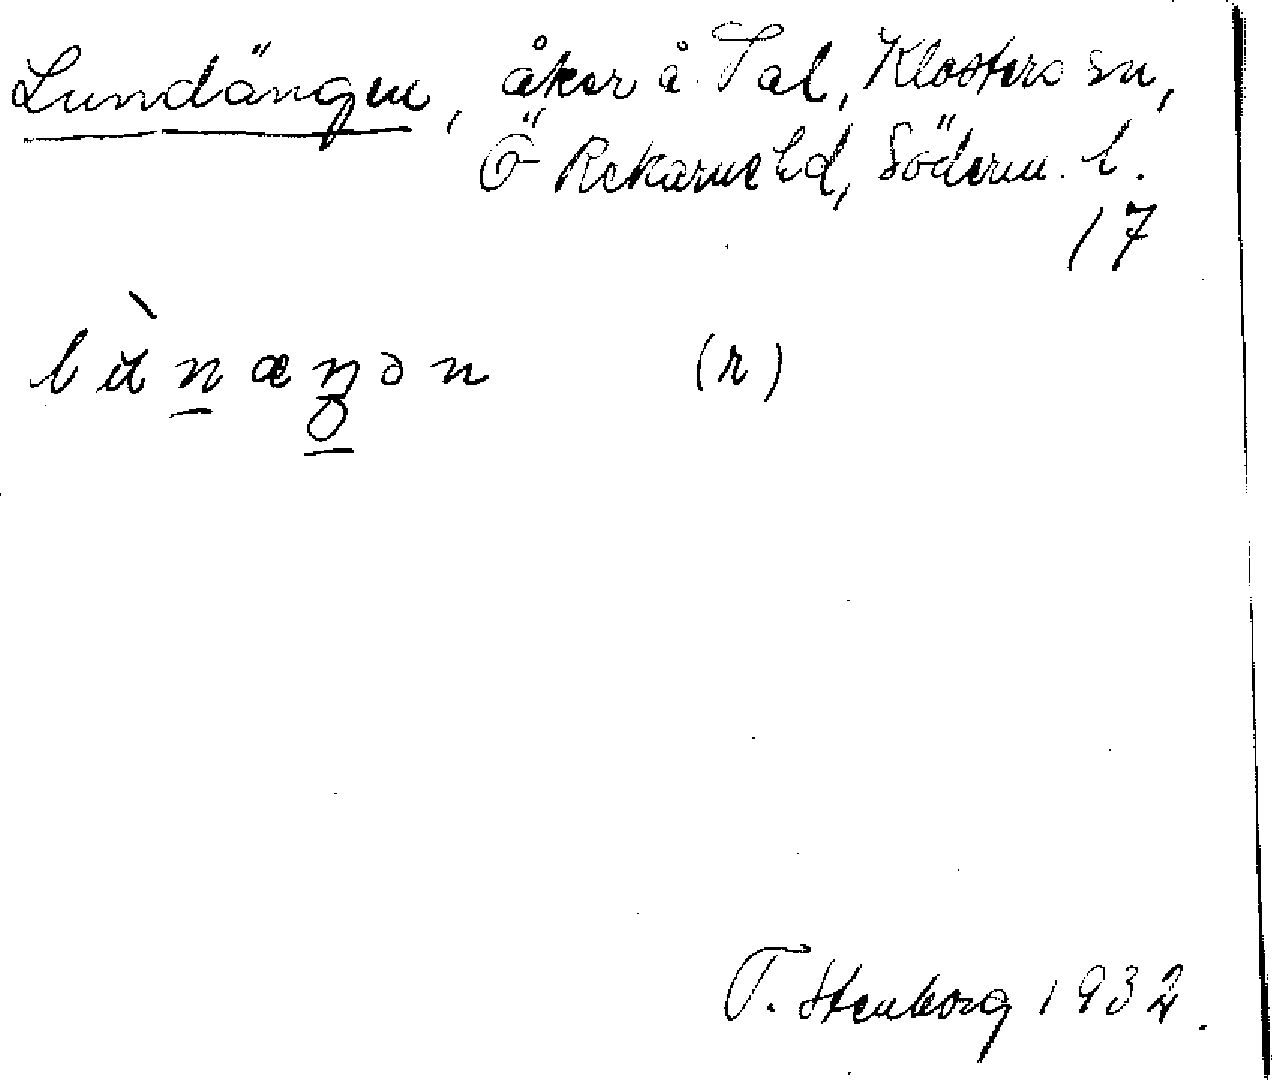 Lundängen, åker å Tal, Klosters sn,
Ö Rekarne hd, Söderm. l.
17
(r)
T. Stenborg 1932.